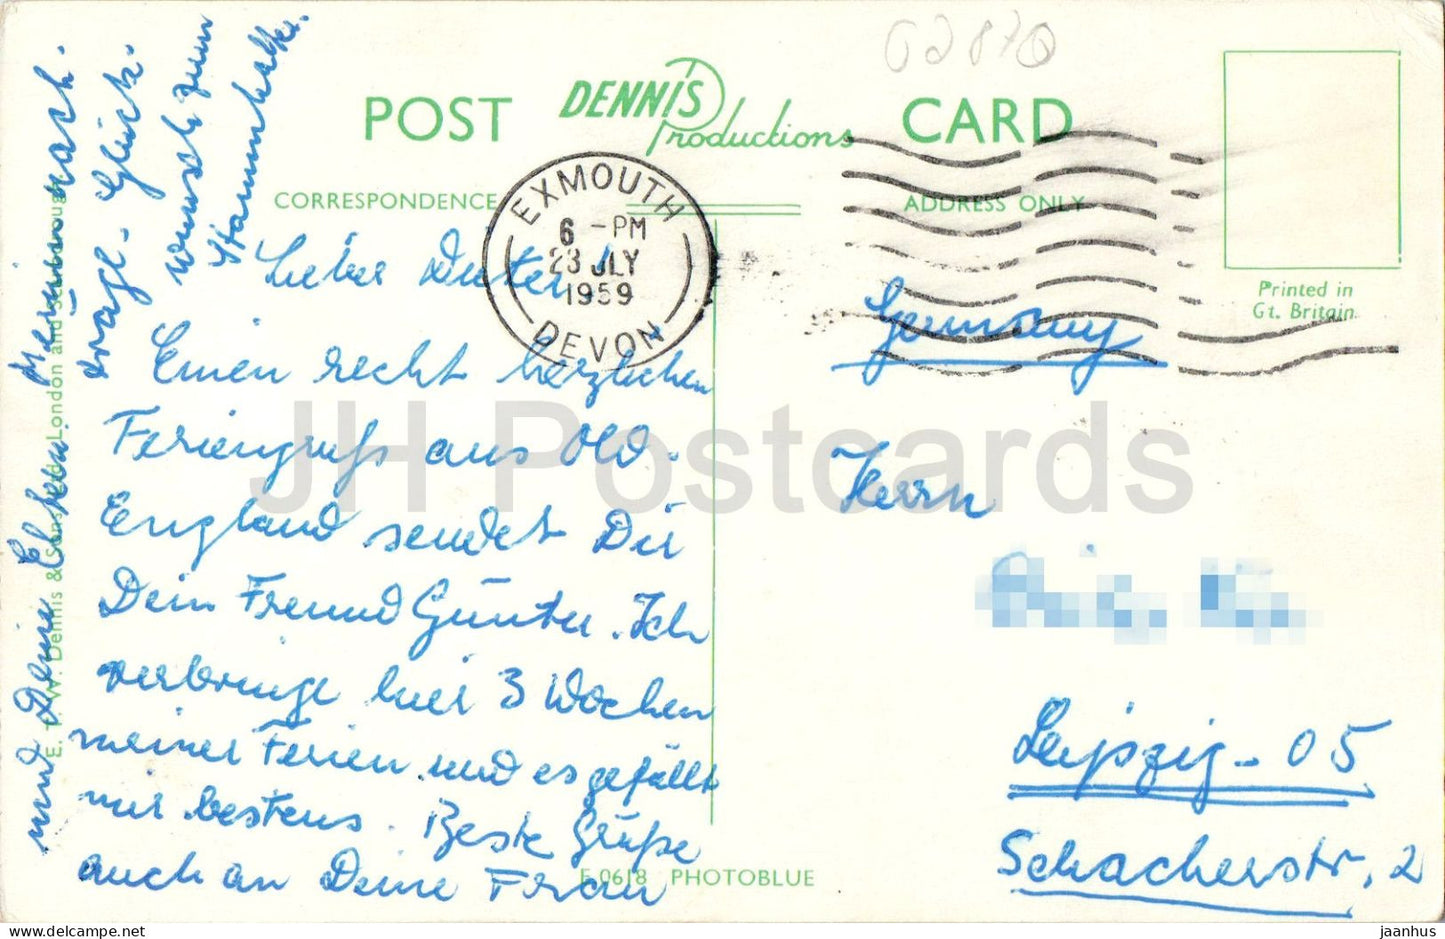 02870
POST
DENNIS
Productions
CARD
CORRESPONDENCE
ADDRESS ONLY
EXMOUTH
6 - PM
23 JLY
1959
DEVON
Printed in
Gt. Britain
Lieber Dieter!
Einen recht herzlichen
Feriengruß aus Old-
England sendet Dir
Dein Freund Günter. Ich
verbringe hier 3 Wochen
meiner Ferien und es gefällt
mir bestens. Beste Grüße
auch an Deine Frau
und Deine Eltern.
nach-
trägl. Glück-
wunsch zum
Stammhalter.
Germany
Herrn
Leipzig - 05
Schacherstr. 2
E. T. W. Dennis & Sons Ltd., London and Scarborough
F.0618 PHOTOBLUE
JH Postcards
https://jhpostcards.net
jaanhus